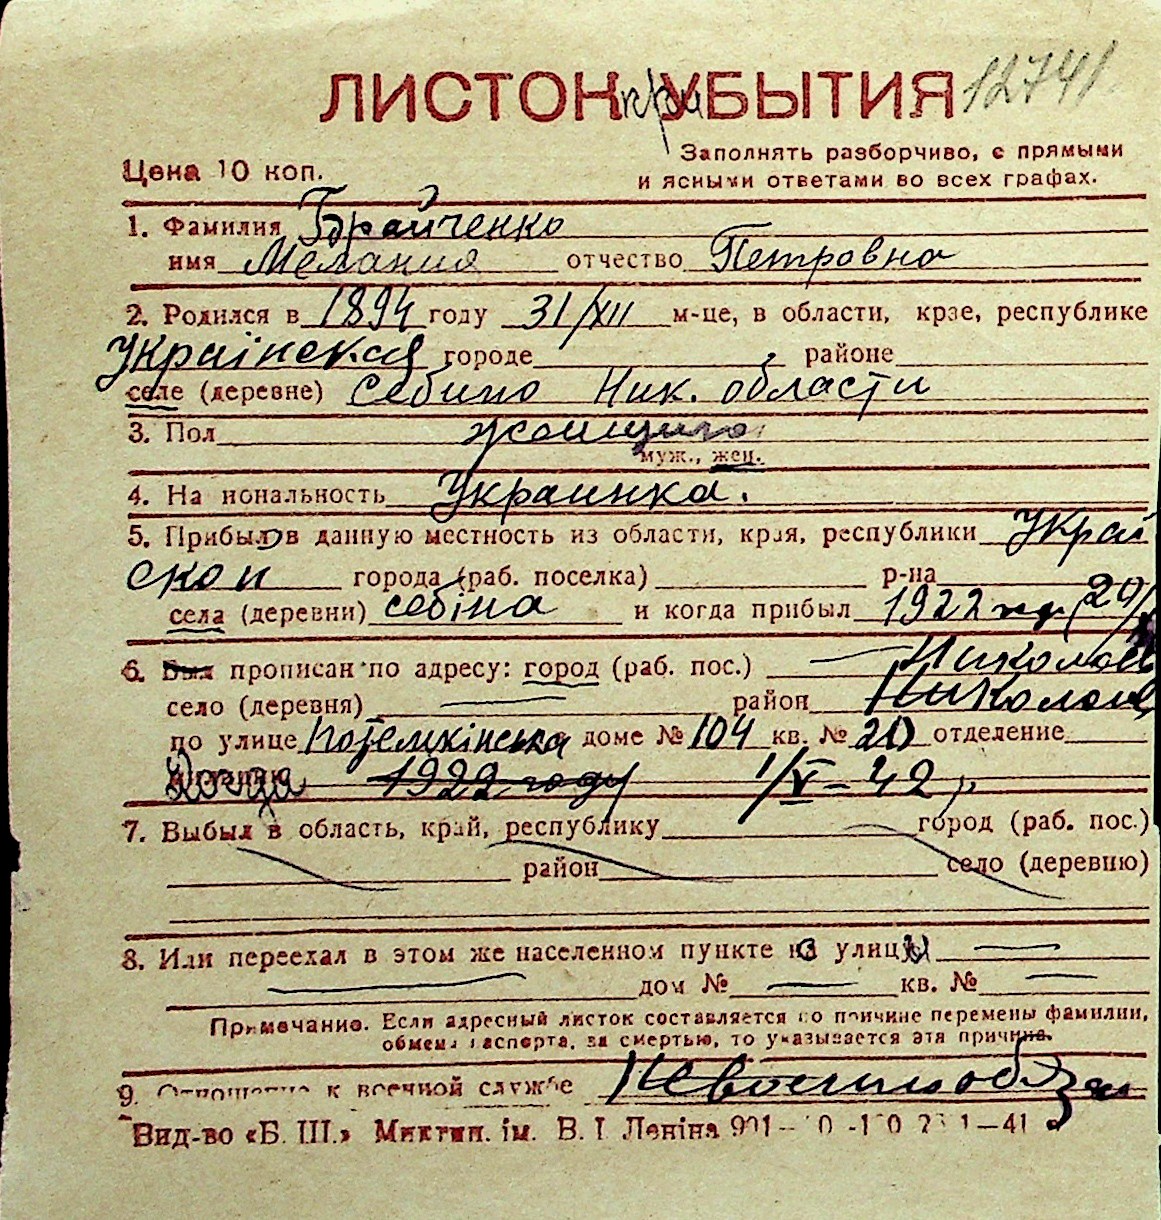 ЛИСТОК УБЫТИЯ 12741
при
Цена 10 коп.
Заполнять разборчиво, с прямыми
и ясными ответами во всех графах.
1. Фамилия Брайченко
имя Мелания отчество Петровна
2. Родился в 1894 году 31/XII м-це, в области, крае, республике
Українская городе районе
селе (деревне) Себино Ник. области
3. Пол женщина
муж., жен.
4. Национальность Украинка.
5. Прибыл в данную местность из области, края, республики Украї
ской города (раб. поселка) р-на
села (деревни) Себіна и когда прибыл 1922 (20/
6. Был прописан по адресу: город (раб. пос.) Николаев
село (деревня) район Николаев
по улице доме № 104 кв. № 20 отделение
Когда 1922 году 1/V-42 г.
7. Выбыл в область, край, республику город (раб. пос.)
район село (деревню)
8. Или переехал в этом же населенном пункте из улицы
дом № кв. №
Примечание. Если адресный листок составляется по причине перемены фамилии,
обмена паспорта, за смертью, то указывается эта причина.
9. Отношение к военной службе Невоеннообязан
Вид-во «Б. Ш.» Миктип. ім. В. І. Леніна